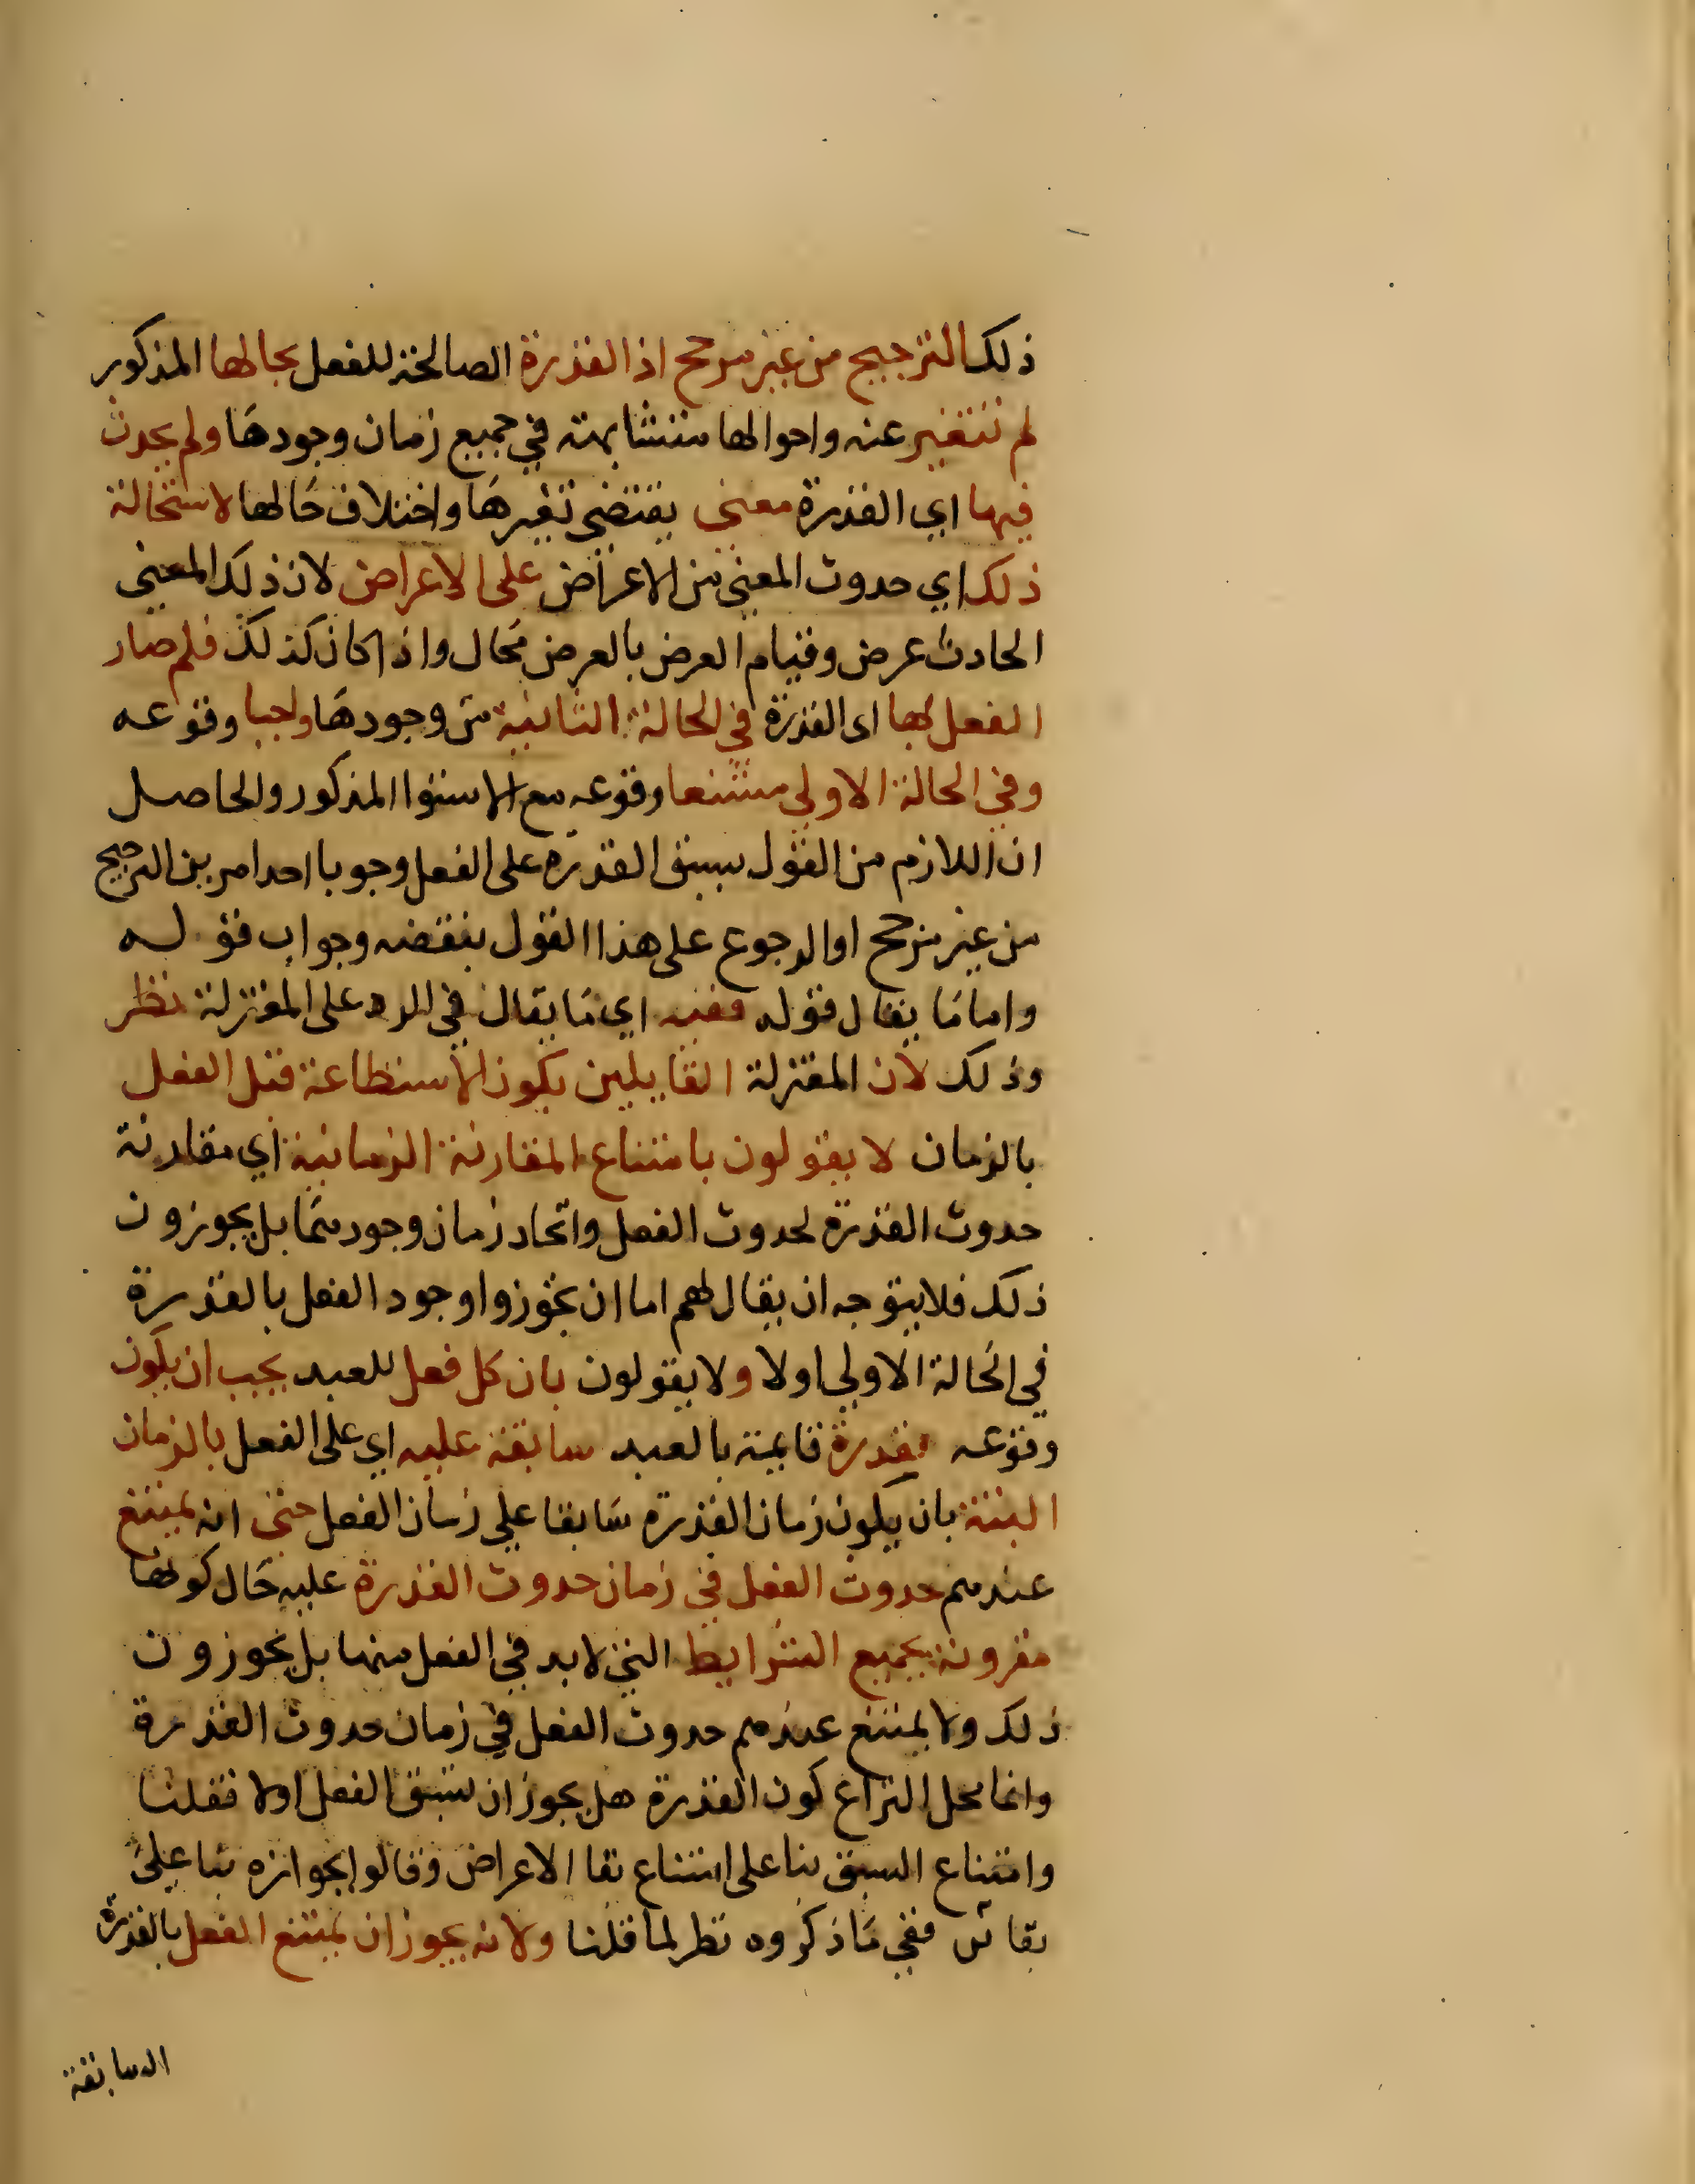 ذلك الترجيح من غير مرجح اذ القدرة الصالحة للفعل بحالها المذكور
لم تتغير عنه واحوالها متشابهة في جميع زمان وجودها ولم يحدث
فيها اي القدرة معنى يقتضي تغيرها واختلاف حالها لاستحالة
ذلك اي حدوث المعنى من الاعراض على الاعراض لان ذلك المعنى
الحادث عرض وقيام العرض بالعرض محال واذا كان كذلك فلم صار
الفعل بها اى القدرة في الحالة الثانية من وجودها واجبا وقوعه
وفي الحالة الاولى ممتنعا وقوعه مع الاستوا المذكور والحاصل
ان اللازم من القول بسبق القدرة على الفعل وجوبا احد امرين الترجيح
من غير مرجح او الرجوع على هذا القول بنقضه وجواب قوله
واما ما يقال قوله ففيه اي ما يقال في الرد على المعتزلة نظر
وذلك لان المعتزلة القايلين بكون الاستطاعة قبل الفعل
بالزمان لا يقولون بامتناع المقارنة الزمانية اي مقارنة
حدوث القدرة لحدوث الفعل واتحاد زمان وجودهما بل يجوزون
ذلك فلا يتوجه ان يقال لهم اما ان تجوزوا وجود الفعل بالقدرة
في الحالة الاولى اولا ولا يقولون بان كل فعل للعبد يجب ان يكون
وقوعه بقدرة قايمة بالعبد سابقة عليه اي على الفعل بالزمان
البتة بان يكون زمان القدرة سابقا على زمان الفعل حتى انه يمتنع
عندهم حدوث الفعل في زمان حدوث القدرة عليه حال كونها
مقرونة بجميع الشرايط التي لابد في الفعل منها بل يجوزون
ذلك ولا يمتنع عندهم حدوث الفعل في زمان حدوث القدرة
وانما محل النزاع كون القدرة هل يجوز ان تسبق الفعل اولا فقلنا
وامتناع السبق بنا على امتناع بقا الاعراض وقالوا بجوازه بنا على
بقائها ففي ما ذكروه نظر لما قلنا ولانه يجوز ان يمتنع الفعل بالقدرة
السابقة